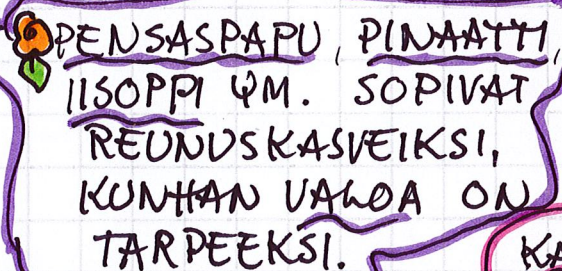 PENSASPAPU, PINAATTI,
IISOPPI YM. SOPIVAT
REUNUSKASVEIKSI,
KUNHAN VALOA ON
TARPEEKSI.
KA